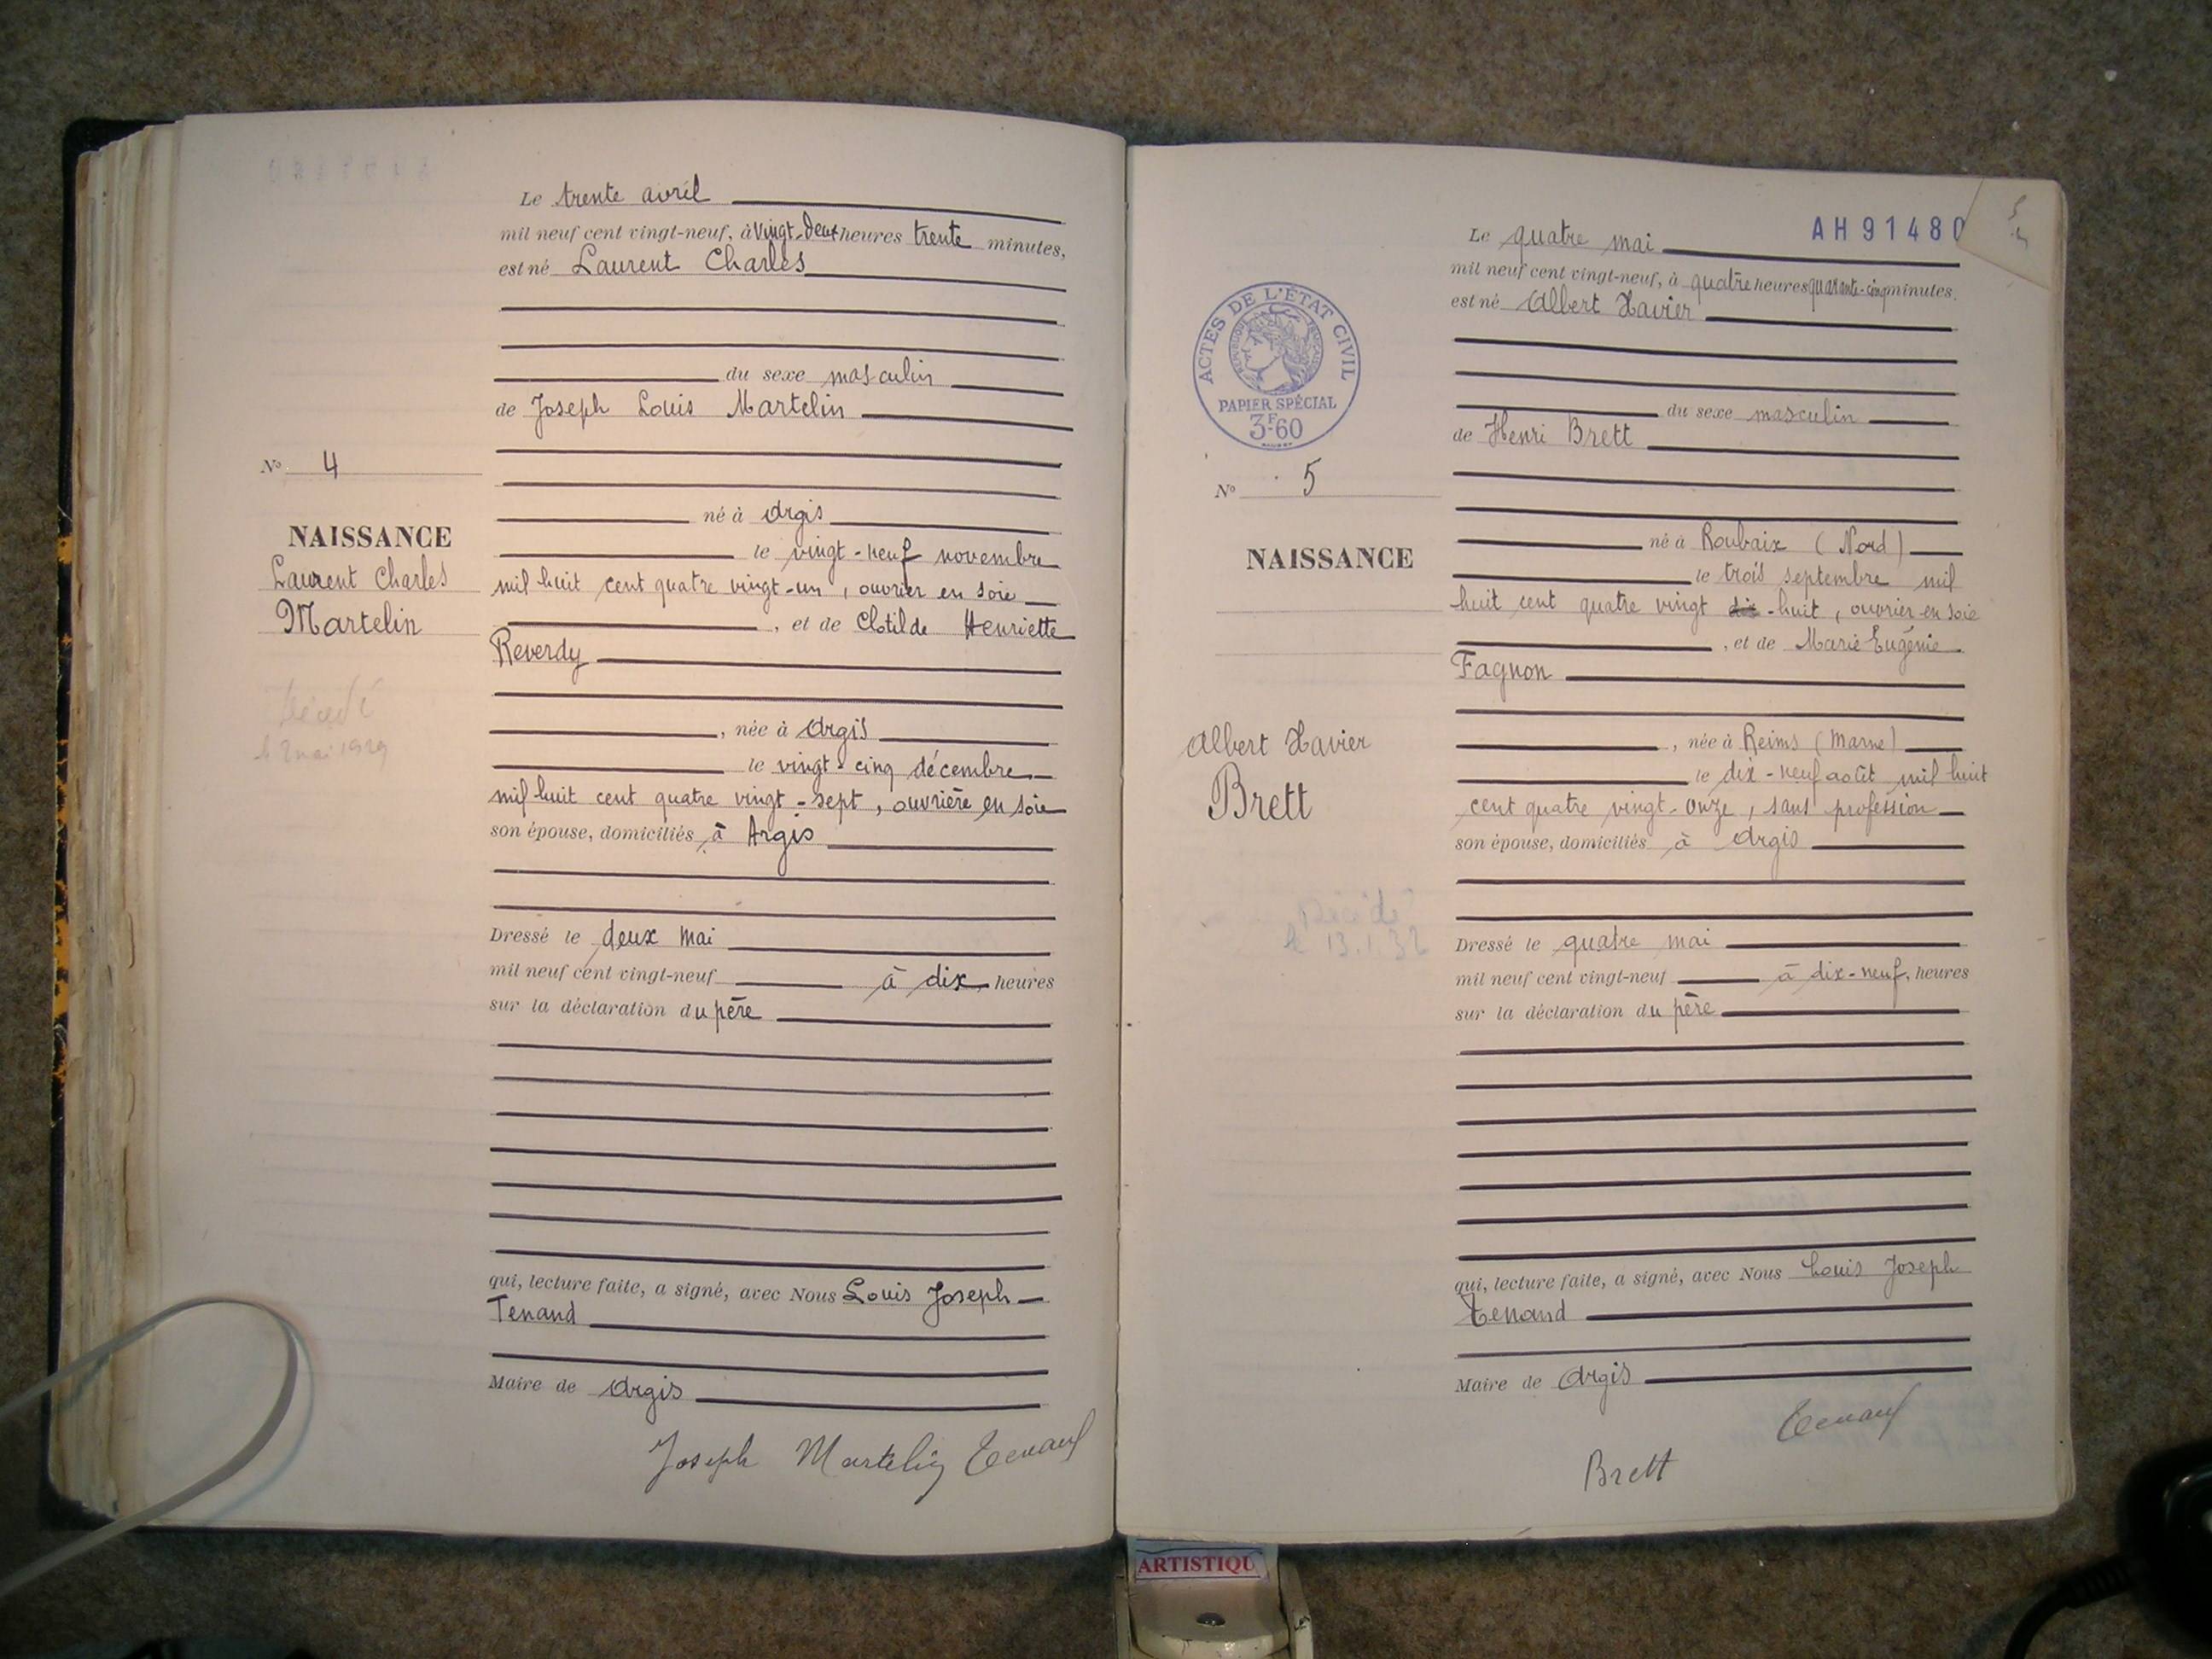 Le trente avril
mil neuf cent vingt-neuf, à vingt-deux heures trente minutes,
est né Laurent Charles
du sexe masculin
de Joseph Louis Martelin
né à Argis
le vingt-neuf novembre
mil huit cent quatre vingt-un, ouvrier en soie
, et de Clotilde Henriette
Reverdy
, née à Argis
le vingt-cinq décembre
mil huit cent quatre vingt-sept, ouvrière en soie
son épouse, domiciliés à Argis
Dressé le deux mai
mil neuf cent vingt-neuf à dix heures
sur la déclaration du père
qui, lecture faite, a signé, avec Nous Louis Joseph
Tenand
Maire de Argis
Joseph Martelin Tenand
N° 4
NAISSANCE
Laurent Charles
Martelin
Décédé
le 2 mai 1929
AH91480
Le quatre mai
mil neuf cent vingt-neuf, à quatre heures quarante-cinq minutes.
est né Albert Xavier
du sexe masculin
de Henri Brett
né à Roubaix (Nord)
le trois septembre mil
huit cent quatre vingt dix-huit, ouvrier en soie
, et de Marie Eugénie
Fagnon
, née à Reims (Marne)
le dix-neuf août mil huit
cent quatre vingt-onze, sans profession
son épouse, domiciliés à Argis
Dressé le quatre mai
mil neuf cent vingt-neuf à dix-neuf, heures
sur la déclaration du père
qui, lecture faite, a signé, avec Nous Louis Joseph
Tenand
Maire de Argis
Tenand
Brett
ACTES DE L'ÉTAT CIVIL
RÉPUBLIQUE FRANÇAISE
PAPIER SPÉCIAL
3F60
N° 5
NAISSANCE
Albert Xavier
Brett
Décédé
le 13.1.32
ARTISTIQU